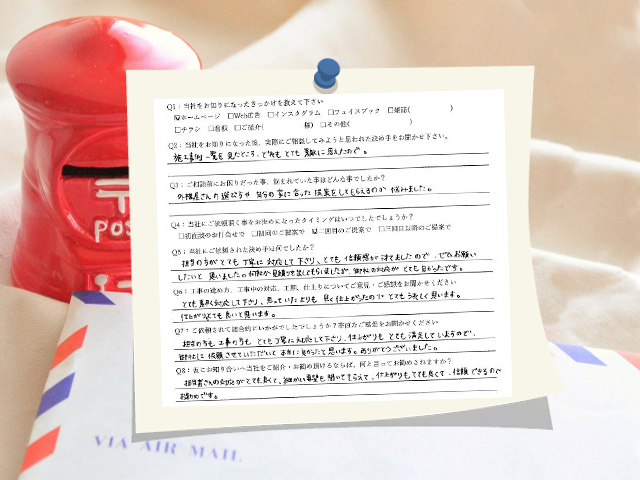 Q1：当社をお知りになったきっかけを教えて下さい
☑ホームページ □Web広告 □インスタグラム □フェイスブック □雑誌( )
□チラシ □看板 □ご紹介( 様) □その他( )
Q2：当社をお知りになった後、実際にご相談してみようと思われた決め手をお聞かせ下さい。
施工事例一覧を見たところ、どれもとても素敵に思えたので。
Q3：ご相談前にお困りだった事、悩まれていた事はどんな事でしたか？
外構屋さんの選び方や自分の家に合った提案をしてもらえるのか悩みました。
Q4：当社にご依頼頂く事をお決めになったタイミングはいつでしたでしょうか？
□初面談のお打合せで □初回のご提案で ☑二回目のご提案で □三回目以降のご提案で
Q5：当社に依頼された決め手は何でしたか？
担当の方がとても丁寧に対応して下さり、とても信頼感が持てましたので、ぜひお願い
したいと思いました。何社か見積りを試してもらいましたが、御社の対応がとても良かったです。
Q6：工事の進め方、工事中の対応、工期、仕上りについてご意見・ご感想をお聞かせください
とても素早く対応して下さり、思っていたよりも早く仕上がったのでとてもうれしく思います。
仕上がりもとても良いと思います。
Q7：ご依頼されて総合的にいかがでしたでしょうか？率直なご感想をお聞かせください
担当の方も工事の方もとても丁寧に対応して下さり、仕上がりもとても満足しているので、
御社に依頼させていただいて本当に良かったと思います。ありがとうございました。
Q8：友にお知り合いへ当社をご紹介・お勧め頂けるならば、何と言ってお勧めされますか？
担当者さんの対応がとても良くて、細かい要望も聞いてもらえて、仕上がりもとても良くて、信頼できるので
お勧めです。
POS
VIA AIR MAIL